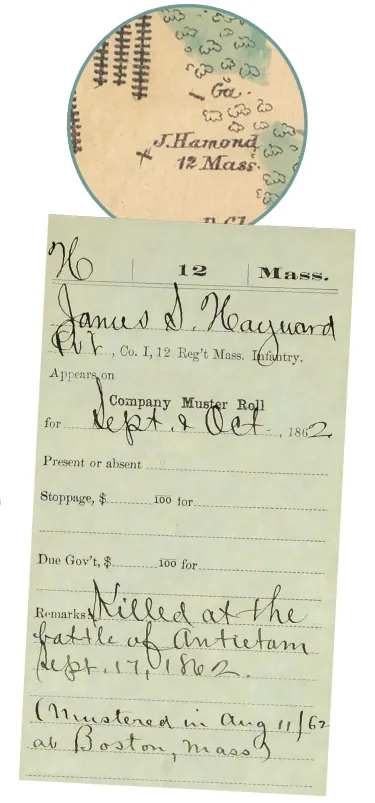 Ga.
J. Hamond
12 Mass.
H | 12 | Mass.
James S. Hayward
Pvt, Co. I, 12 Reg't Mass. Infantry.
Appears on
Company Muster Roll
for Sept. & Oct., 1862
Present or absent
Stoppage, $ 100 for
Due Gov't, $ 100 for
Remarks: Killed at the
battle of Antietam
Sept. 17, 1862.
(Mustered in Aug 11/62
at Boston, Mass)